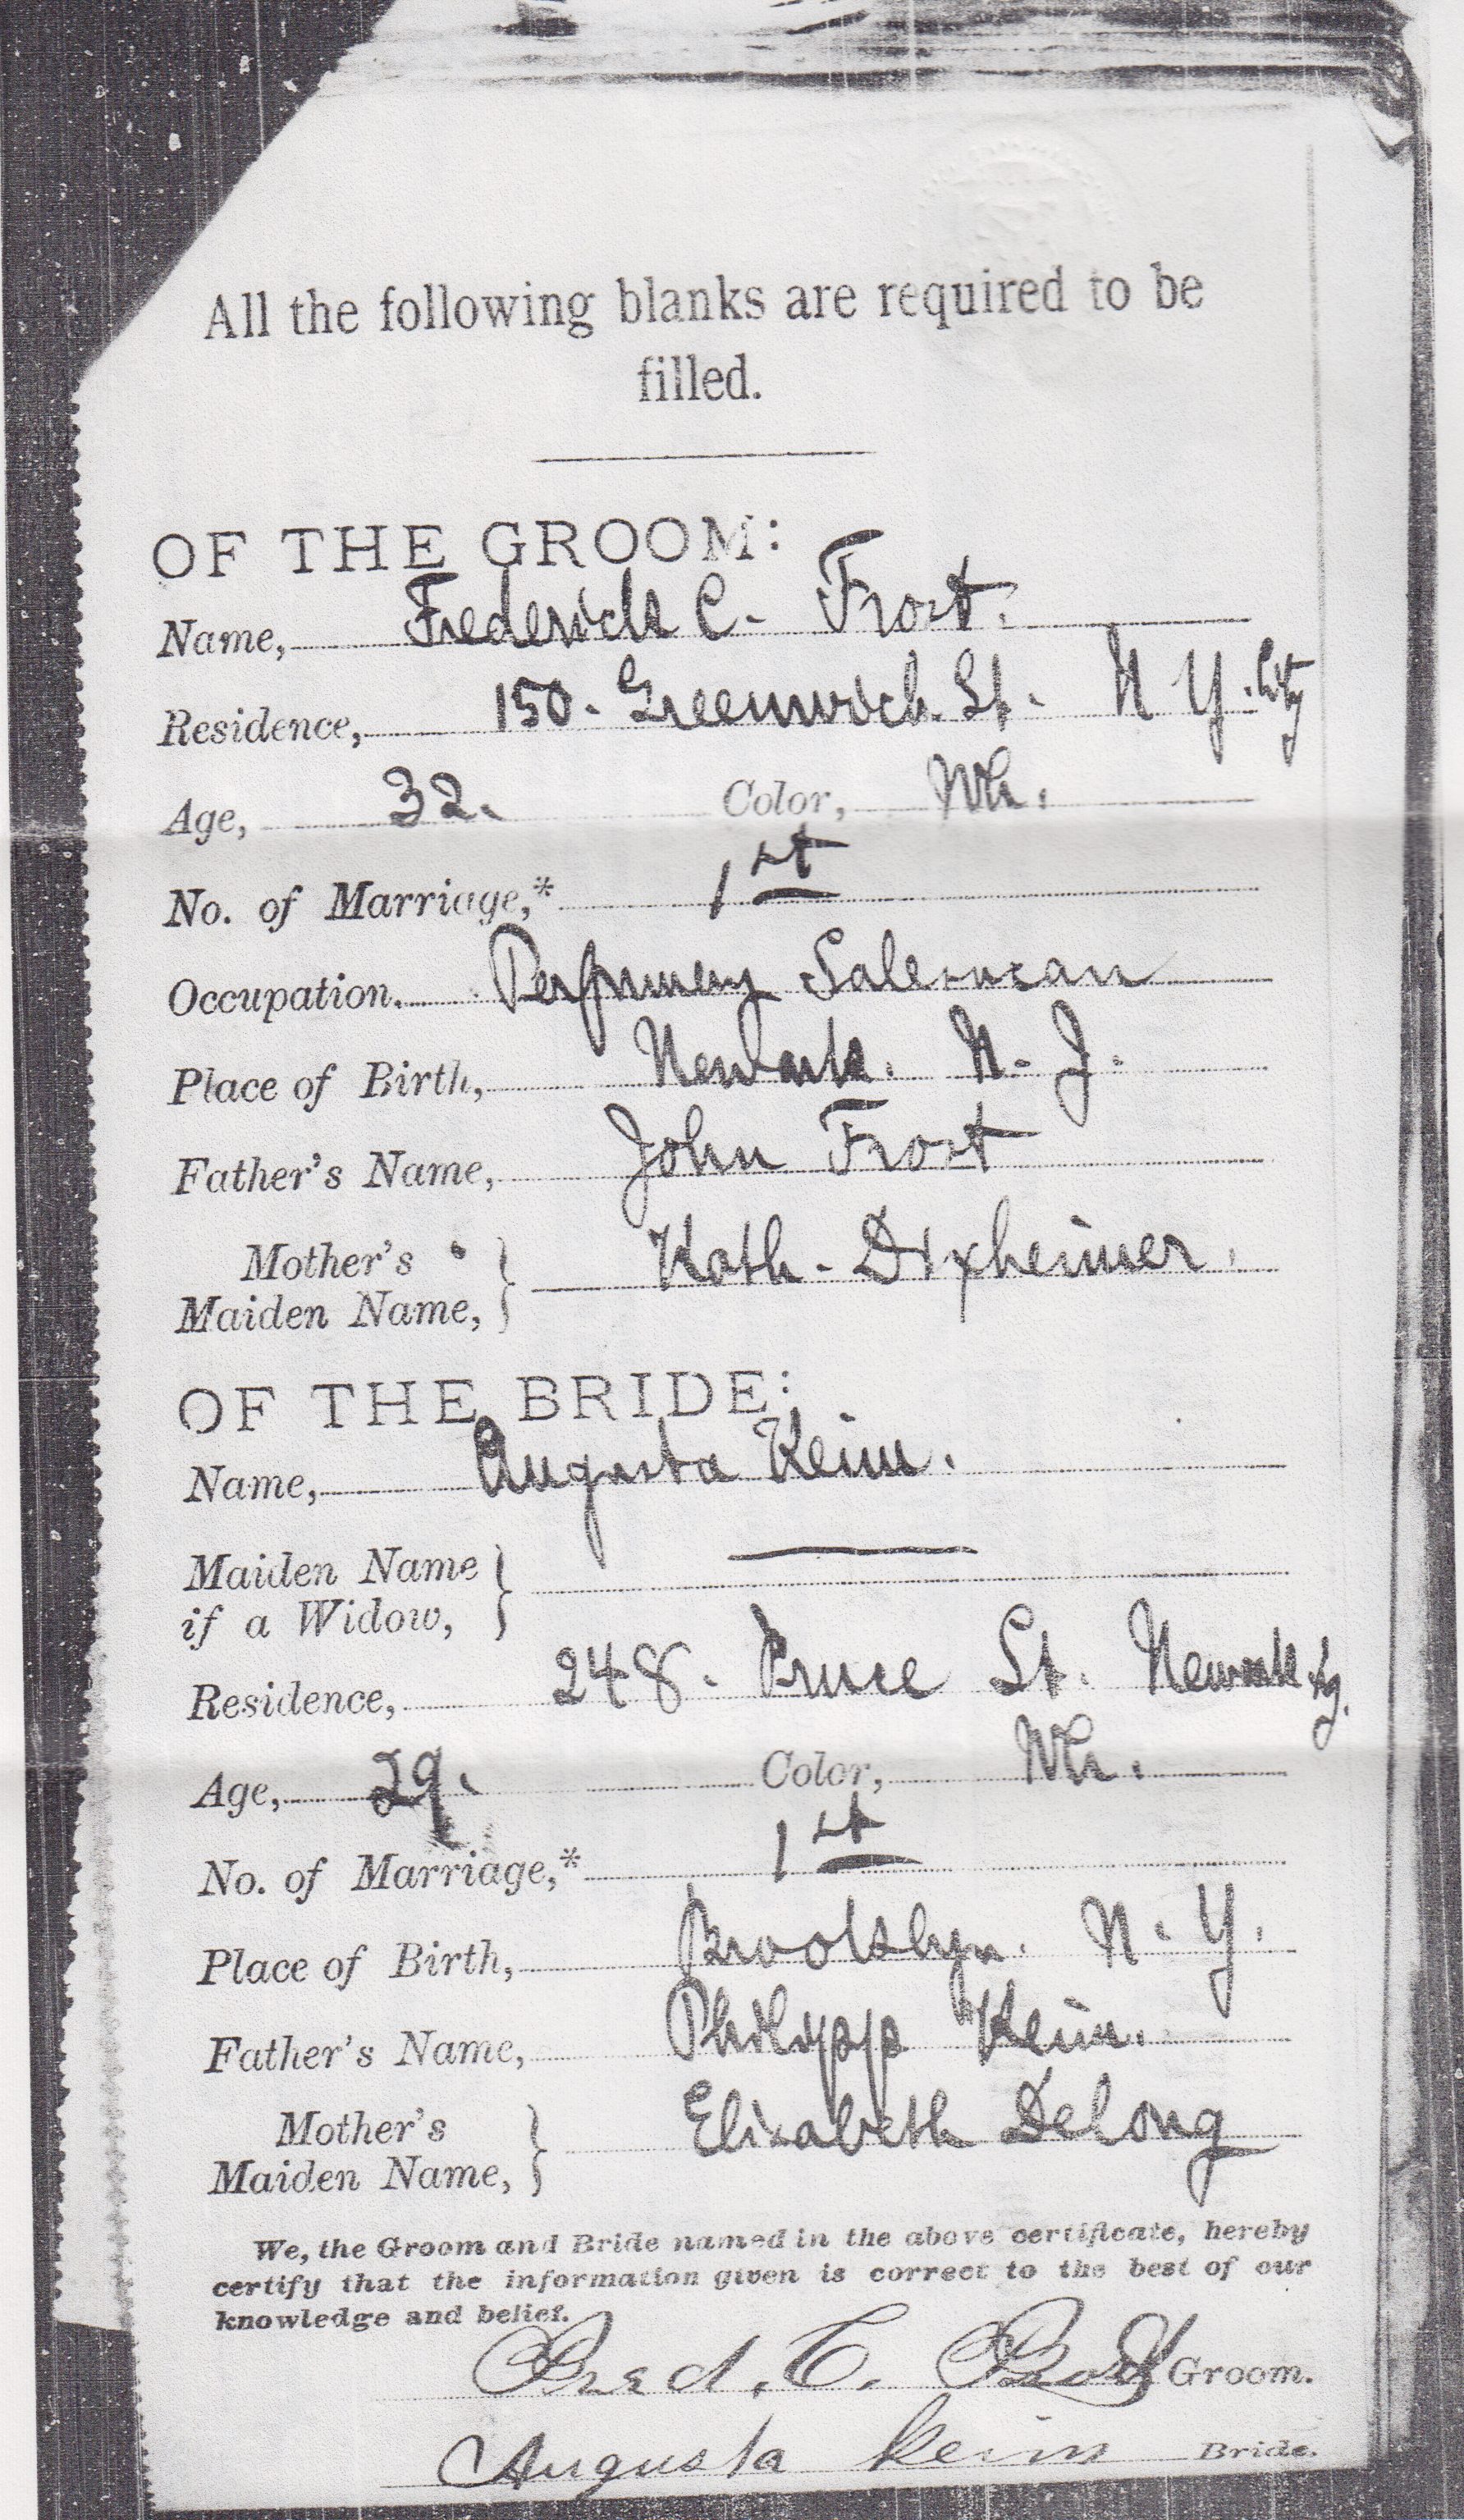 All the following blanks are required to be
filled.
OF THE GROOM:
Name, Frederick C. Frost.
Residence, 150. Greenwich. St. N Y. City
Age, 32. Color, Wh.
No. of Marriage,* 1st
Occupation, Perfumery Salesman
Place of Birth, Newark. N. J.
Father's Name, John Frost
Mother's
Maiden Name, } Kath. Dixheimer.
OF THE BRIDE:
Name, Augusta Keim.
Maiden Name
if a Widow, }
Residence, 248. Bruce St. Newark
Age, 29. Color, Wh.
No. of Marriage,* 1st
Place of Birth, Brooklyn. N. Y.
Father's Name, Philipp Keim.
Mother's
Maiden Name, } Elizabeth Delong
We, the Groom and Bride named in the above certificate, hereby
certify that the information given is correct to the best of our
knowledge and belief.
Fred. C. Frost Groom.
Augusta Keim Bride.